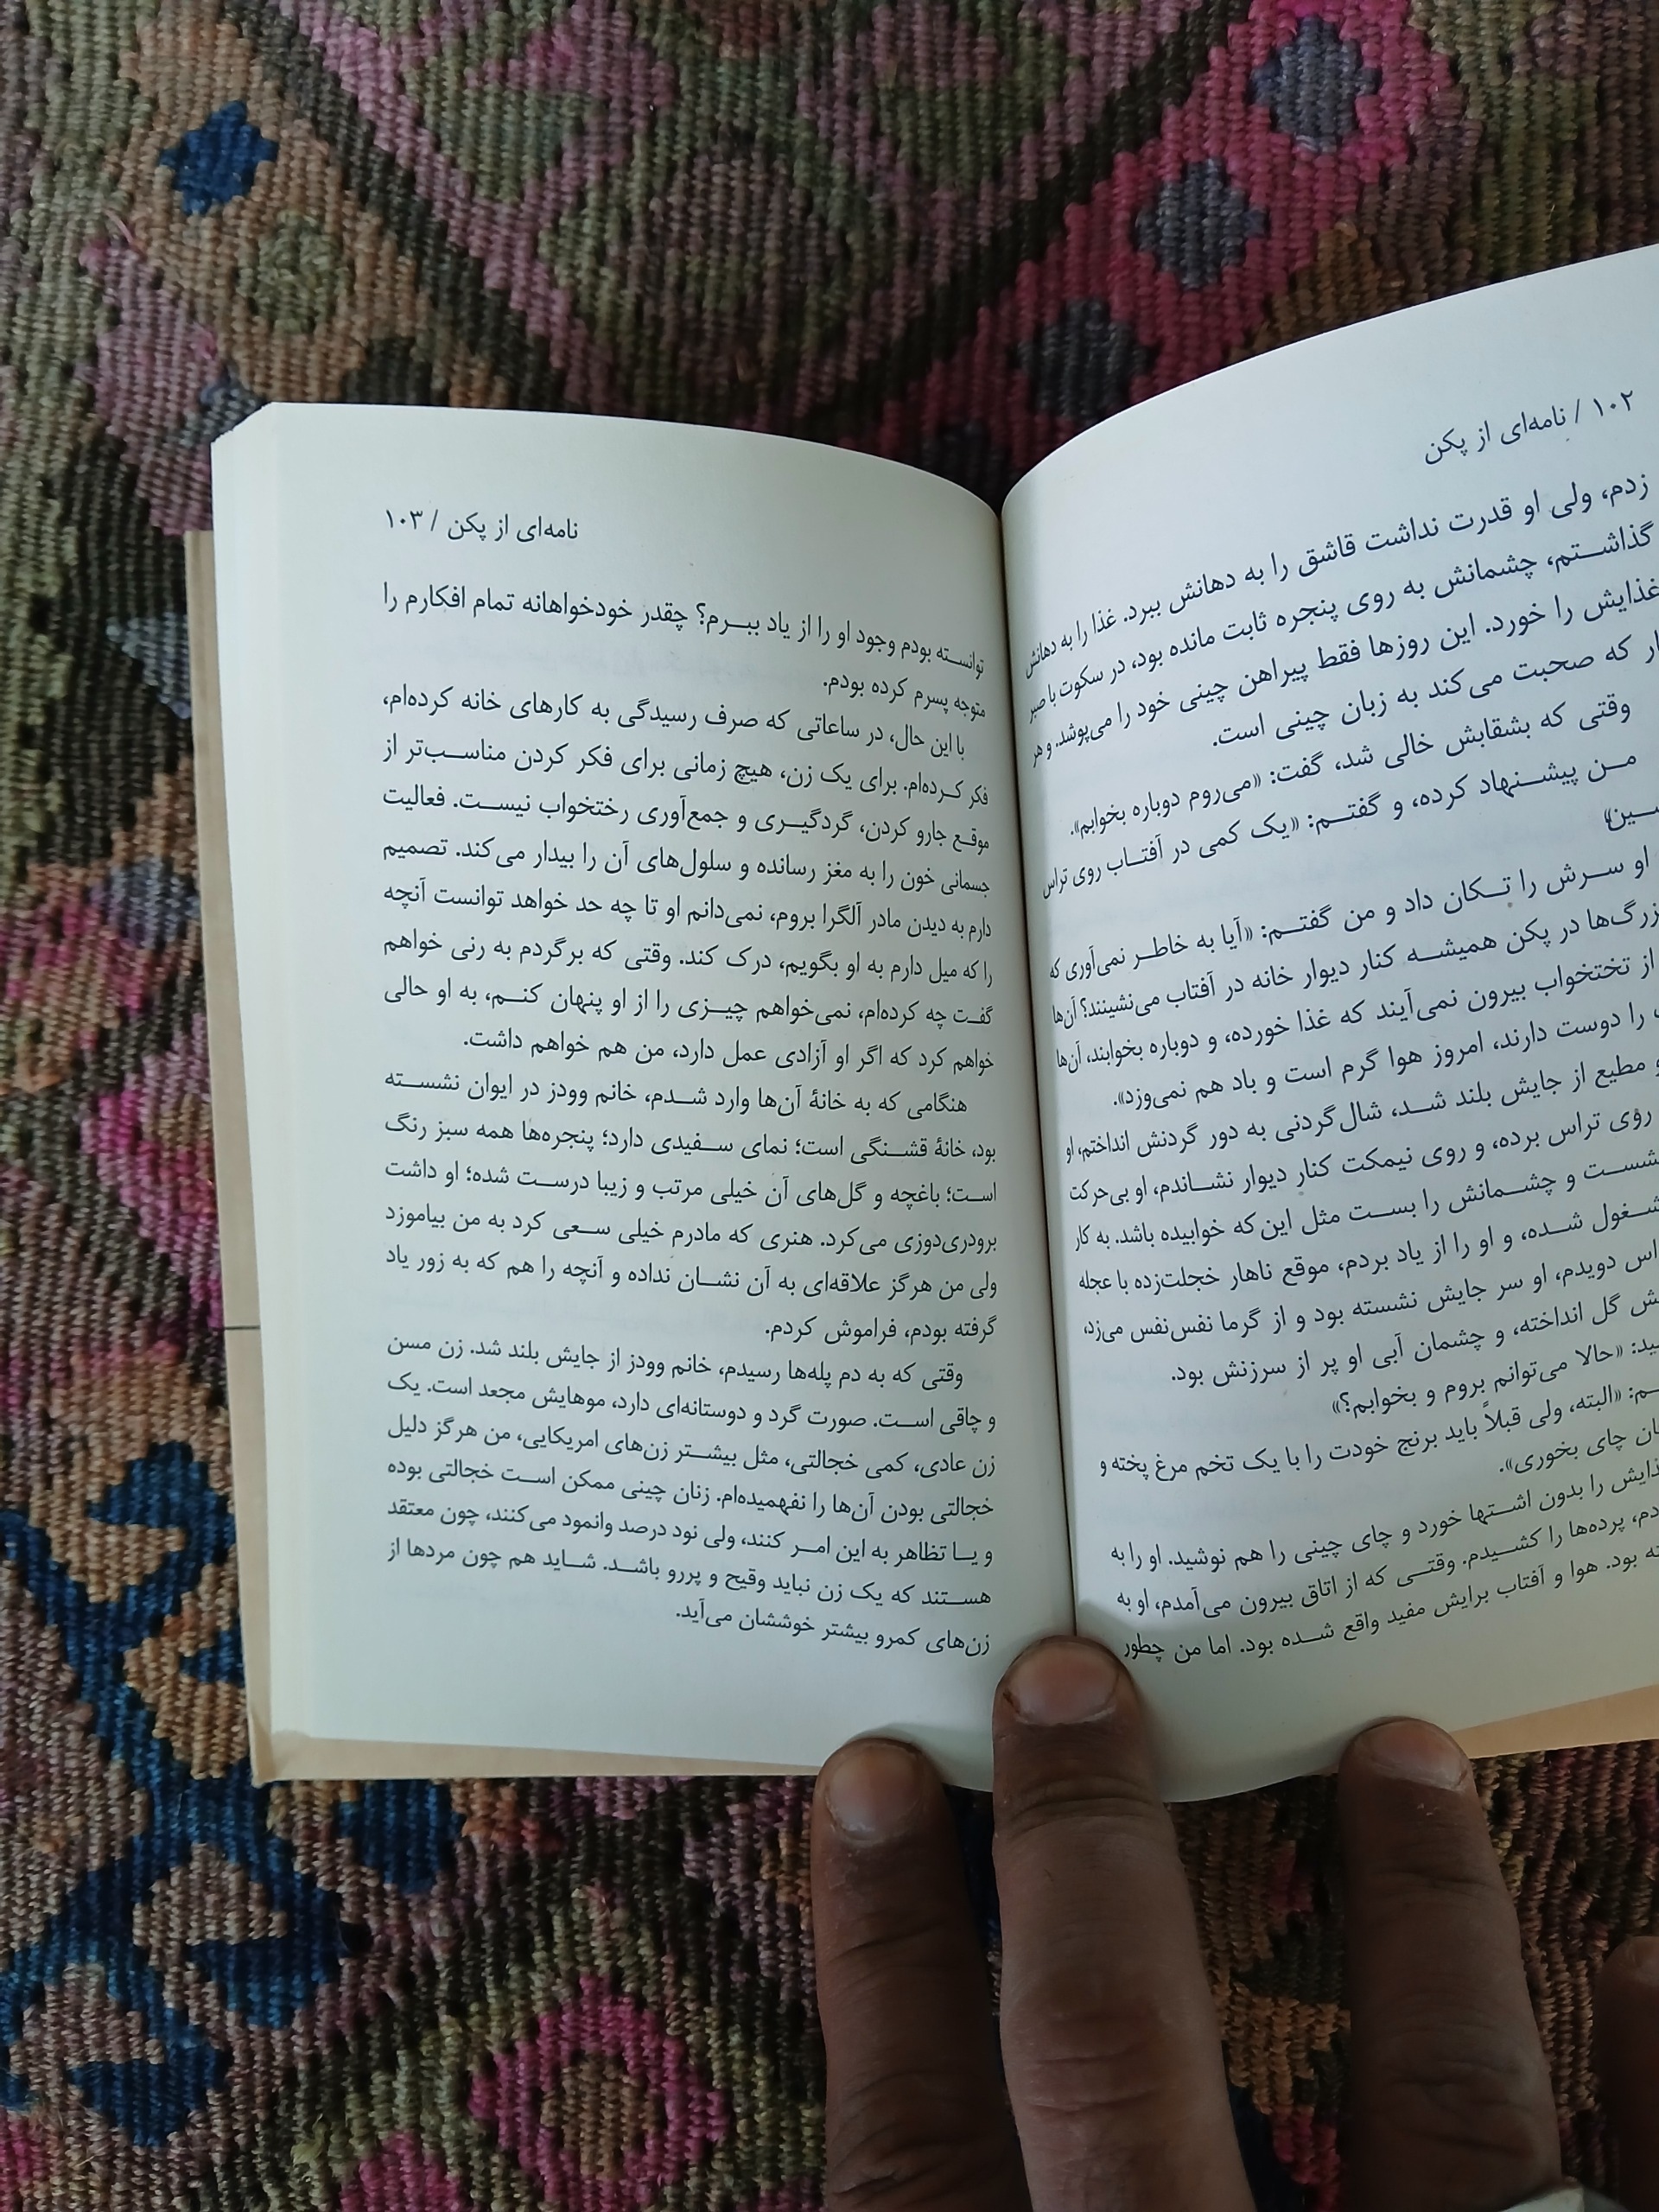 ۱۰۲ / نامه‌ای از پکن
زدم، ولی او قدرت نداشت قاشق را به دهانش ببرد. غذا را به دهانش
گذاشتم، چشمانش به روی پنجره ثابت مانده بود، در سکوت با صبر
غذایش را خورد. این روزها فقط پیراهن چینی خود را می‌پوشد. و هر
که صحبت می‌کند به زبان چینی است.
وقتی که بشقابش خالی شد، گفت: «می‌روم دوباره بخوابم».
من پیشنهاد کرده، و گفتم: «یک کمی در آفتاب روی تراس
او سرش را تکان داد و من گفتم: «آیا به خاطر نمی‌آوری که
در پکن همیشه کنار دیوار خانه در آفتاب می‌نشینند؟ آن‌ها
از تختخواب بیرون نمی‌آیند که غذا خورده، و دوباره بخوابند، آن‌ها
را دوست دارند، امروز هوا گرم است و باد هم نمی‌وزد».
مطیع از جایش بلند شد، شال‌گردنی به دور گردنش انداختم، او
روی تراس برده، و روی نیمکت کنار دیوار نشاندم، او بی‌حرکت
و چشمانش را بست مثل این‌که خوابیده باشد. به کار
شده، و او را از یاد بردم، موقع ناهار خجلت‌زده با عجله
دویدم، او سر جایش نشسته بود و از گرما نفس‌نفس می‌زد،
گل انداخته، و چشمان آبی او پر از سرزنش بود.
«حالا می‌توانم بروم و بخوابم؟»
«البته، ولی قبلاً باید برنج خودت را با یک تخم مرغ پخته و
چای بخوری».
را بدون اشتها خورد و چای چینی را هم نوشید. او را به
پرده‌ها را کشیدم. وقتی که از اتاق بیرون می‌آمدم، او به
بود. هوا و آفتاب برایش مفید واقع شده بود. اما من چطور
نامه‌ای از پکن / ۱۰۳
توانسته بودم وجود او را از یاد ببرم؟ چقدر خودخواهانه تمام افکارم را
متوجه پسرم کرده بودم.
با این حال، در ساعاتی که صرف رسیدگی به کارهای خانه کرده‌ام،
فکر کرده‌ام. برای یک زن، هیچ زمانی برای فکر کردن مناسب‌تر از
موقع جارو کردن، گردگیری و جمع‌آوری رختخواب نیست. فعالیت
جسمانی خون را به مغز رسانده و سلول‌های آن را بیدار می‌کند. تصمیم
دارم به دیدن مادر آلگرا بروم، نمی‌دانم او تا چه حد خواهد توانست آنچه
را که میل دارم به او بگویم، درک کند. وقتی که برگردم به رنی خواهم
گفت چه کرده‌ام، نمی‌خواهم چیزی را از او پنهان کنم، به او حالی
خواهم کرد که اگر او آزادی عمل دارد، من هم خواهم داشت.
هنگامی که به خانهٔ آن‌ها وارد شدم، خانم وودز در ایوان نشسته
بود، خانهٔ قشنگی است؛ نمای سفیدی دارد؛ پنجره‌ها همه سبز رنگ
است؛ باغچه و گل‌های آن خیلی مرتب و زیبا درست شده؛ او داشت
برودری‌دوزی می‌کرد. هنری که مادرم خیلی سعی کرد به من بیاموزد
ولی من هرگز علاقه‌ای به آن نشان نداده و آنچه را هم که به زور یاد
گرفته بودم، فراموش کردم.
وقتی که به دم پله‌ها رسیدم، خانم وودز از جایش بلند شد. زن مسن
و چاقی است. صورت گرد و دوستانه‌ای دارد، موهایش مجعد است. یک
زن عادی، کمی خجالتی، مثل بیشتر زن‌های امریکایی، من هرگز دلیل
خجالتی بودن آن‌ها را نفهمیده‌ام. زنان چینی ممکن است خجالتی بوده
و یا تظاهر به این امر کنند، ولی نود درصد وانمود می‌کنند، چون معتقد
هستند که یک زن نباید وقیح و پررو باشد. شاید هم چون مردها از
زن‌های کمرو بیشتر خوششان می‌آید.